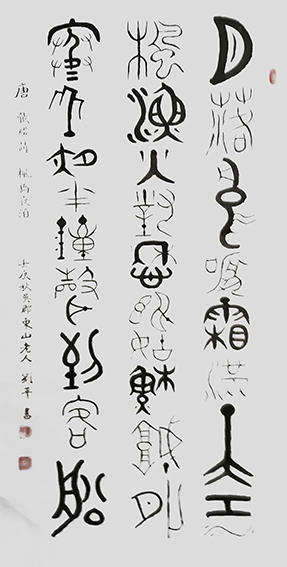 月落烏啼霜滿天江
楓漁火對愁眠姑蘇城外
寒山寺夜半鐘聲到客船
唐 張繼詩 楓橋夜泊 壬辰秋 東山老人 劉 書